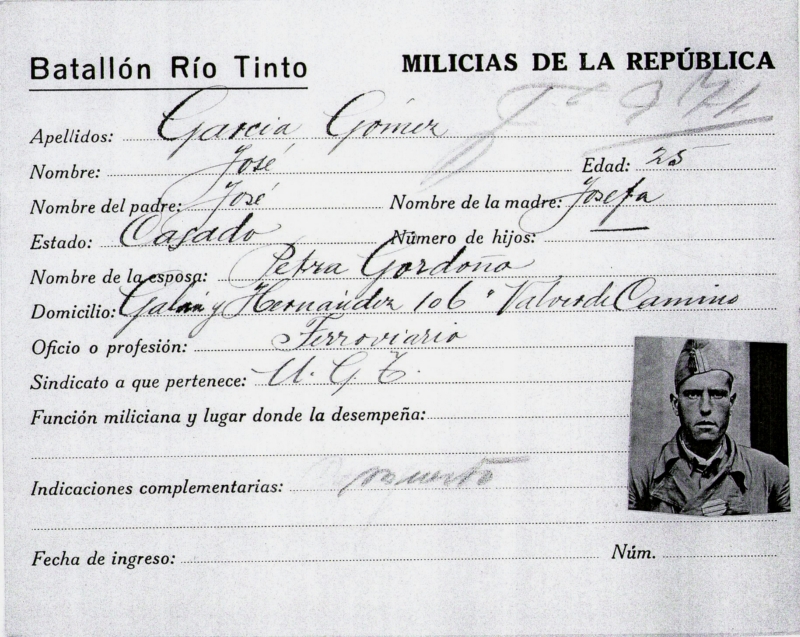 Batallón Río Tinto MILICIAS DE LA REPÚBLICA
Apellidos: Garcia Gómez
Nombre: José Edad: 25
Nombre del padre: José Nombre de la madre: Josefa
Estado: Casado Número de hijos: —
Nombre de la esposa: Petra Gordoño
Domicilio: Galán y Hernández 106 " Valverde Camino
Oficio o profesión: Ferroviario
Sindicato a que pertenece: U. G. T.
Función miliciana y lugar donde la desempeña:
Indicaciones complementarias: muerto
Fecha de ingreso: Núm.